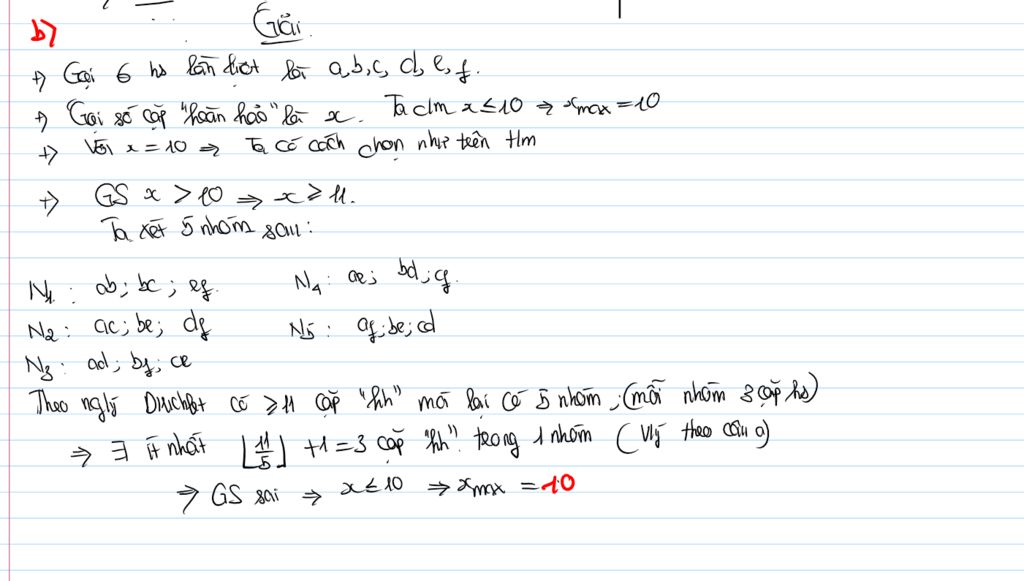 b) Giải
+) Gọi 6 hs lần lượt là a,b,c, d, e, f.
+) Gọi số cặp "hoàn hảo" là x. Ta c/m x ≤ 10 ⇒ xmax = 10
+) Với x = 10 ⇒ Ta có cách chọn như trên t/m
+) GS x > 10 ⇒ x ≥ 11.
Ta xét 5 nhóm sau:
N1: ab; bc; ef. N4: ae; bd; cf.
N2: ac; be; df N5: af; be; cd
N3: ad; bf; ce
Theo nglý Dirichlet có ≥ 11 cặp "hh" mà lại có 5 nhóm; (mỗi nhóm 3 cặp hs)
⇒ ∃ ít nhất ⌊11/5⌋ + 1 = 3 cặp "hh" trong 1 nhóm (Vlý theo câu a)
⇒ GS sai ⇒ x ≤ 10 ⇒ xmax = 10